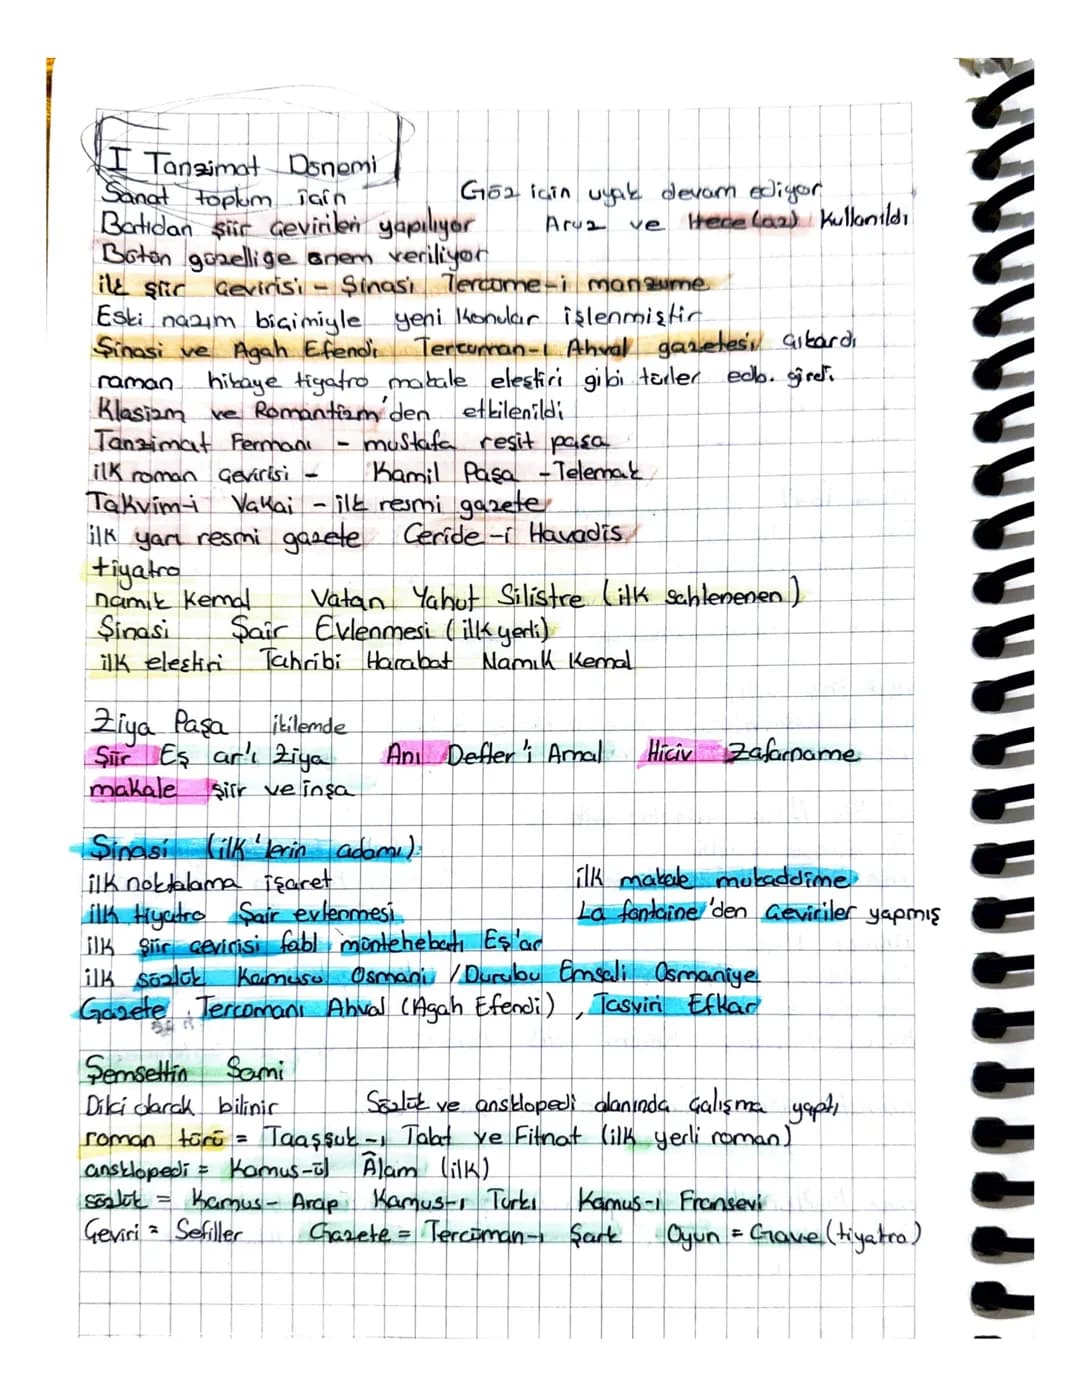 I Tanzimat Dönemi
Sanat toplum için Göz için uyak devam ediyor
Batıdan şiir çevirileri yapılıyor Aruz ve Hece (az) Kullanıldı
Bütün güzelliğe önem veriliyor
ilk şiir çevirisi - Şinasi Tercüme-i manzume
Eski nazım biçimiyle yeni konular işlenmiştir
Şinasi ve Agah Efendi Tercüman-ı Ahval gazetesi çıkardı
roman hikaye tiyatro makale eleştiri gibi türler edb. girdi.
Klasizm ve Romantizm'den etkilenildi
Tanzimat Fermanı - mustafa reşit paşa
ilk roman çevirisi - Kamil Paşa - Telemak
Takvim-i Vakai - ilk resmi gazete
ilk yarı resmi gazete Ceride-i Havadis
tiyatro
namık Kemal Vatan Yahut Silistre (ilk sahlenenen)
Şinasi Şair Evlenmesi (ilk yerli)
ilk eleştiri Tahribi Harabat Namık Kemal
Ziya Paşa ikilemde
Şiir Eş ar'ı Ziya Anı Defter'i Amal Hiciv Zafarname
makale şiir ve inşa
Şinasi (ilk'lerin adamı)
ilk noktalama işaret ilk makale mukaddime
ilk tiyatro Şair evlenmesi La fontaine'den çeviriler yapmış
ilk şiir çevirisi fabl müntehebatı Eş'ar
ilk sözlük Kamusu Osmani / Durubu Emsali Osmaniye
Gazete Tercümanı Ahval (Agah Efendi), Tasviri Efkar
Şemsettin Sami
Dilci olarak bilinir Sözlük ve ansklopedi alanında çalışma yaptı
roman türü = Taaşşuk-ı Talat ve Fitnat (ilk yerli roman)
ansklopedi = Kamus-ül Âlam (ilk)
sözlük = Kamus- Arap Kamus-ı Türkı Kamus-ı Fransevi
Çeviri = Sefiller Gazete = Tercüman-ı Şark Oyun = Gave (tiyatro)